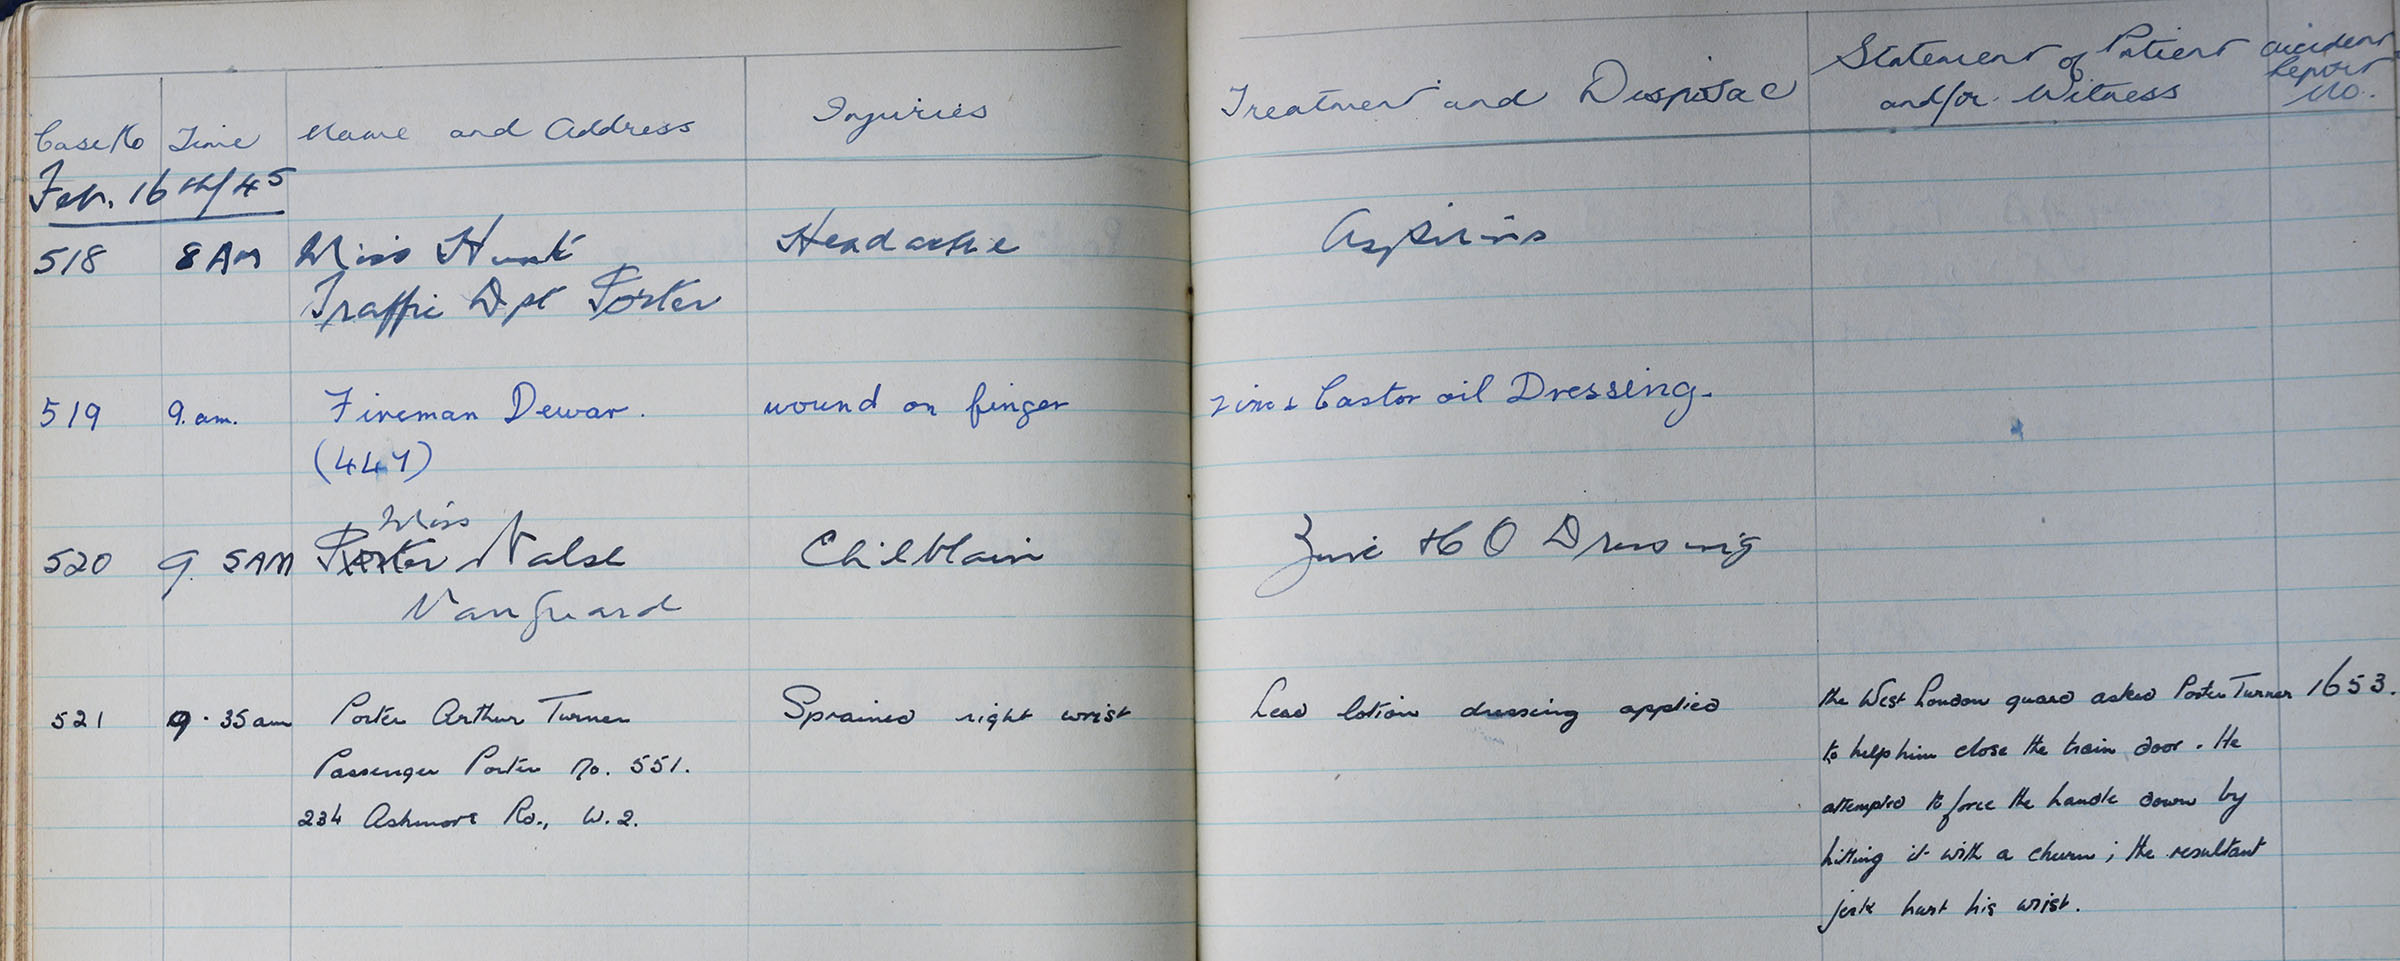 Case No Time Name and Address Injuries Treatment and Disposal Statement of Patient and/or Witness Accident Report No.
Feb. 16th/45
518 8 AM Miss Hunt Headache Aspirins
Traffic Dpt Porter
519 9. am. Fireman Dewar. wound on finger Zinc & Castor oil Dressing.
(447)
Miss
520 9. 5AM Porter Walsh Chilblain Zinc & C O Dressing
Vanguard
521 9.35am Porter Arthur Turner Sprained right wrist Lead lotion dressing applied the West London guard asked Porter Turner 1653.
Passenger Porter No. 551. to help him close the train door. He
234 Ashmore Rd., W.2. attempted to force the handle down by
hitting it with a churn; the resultant
jerk hurt his wrist.